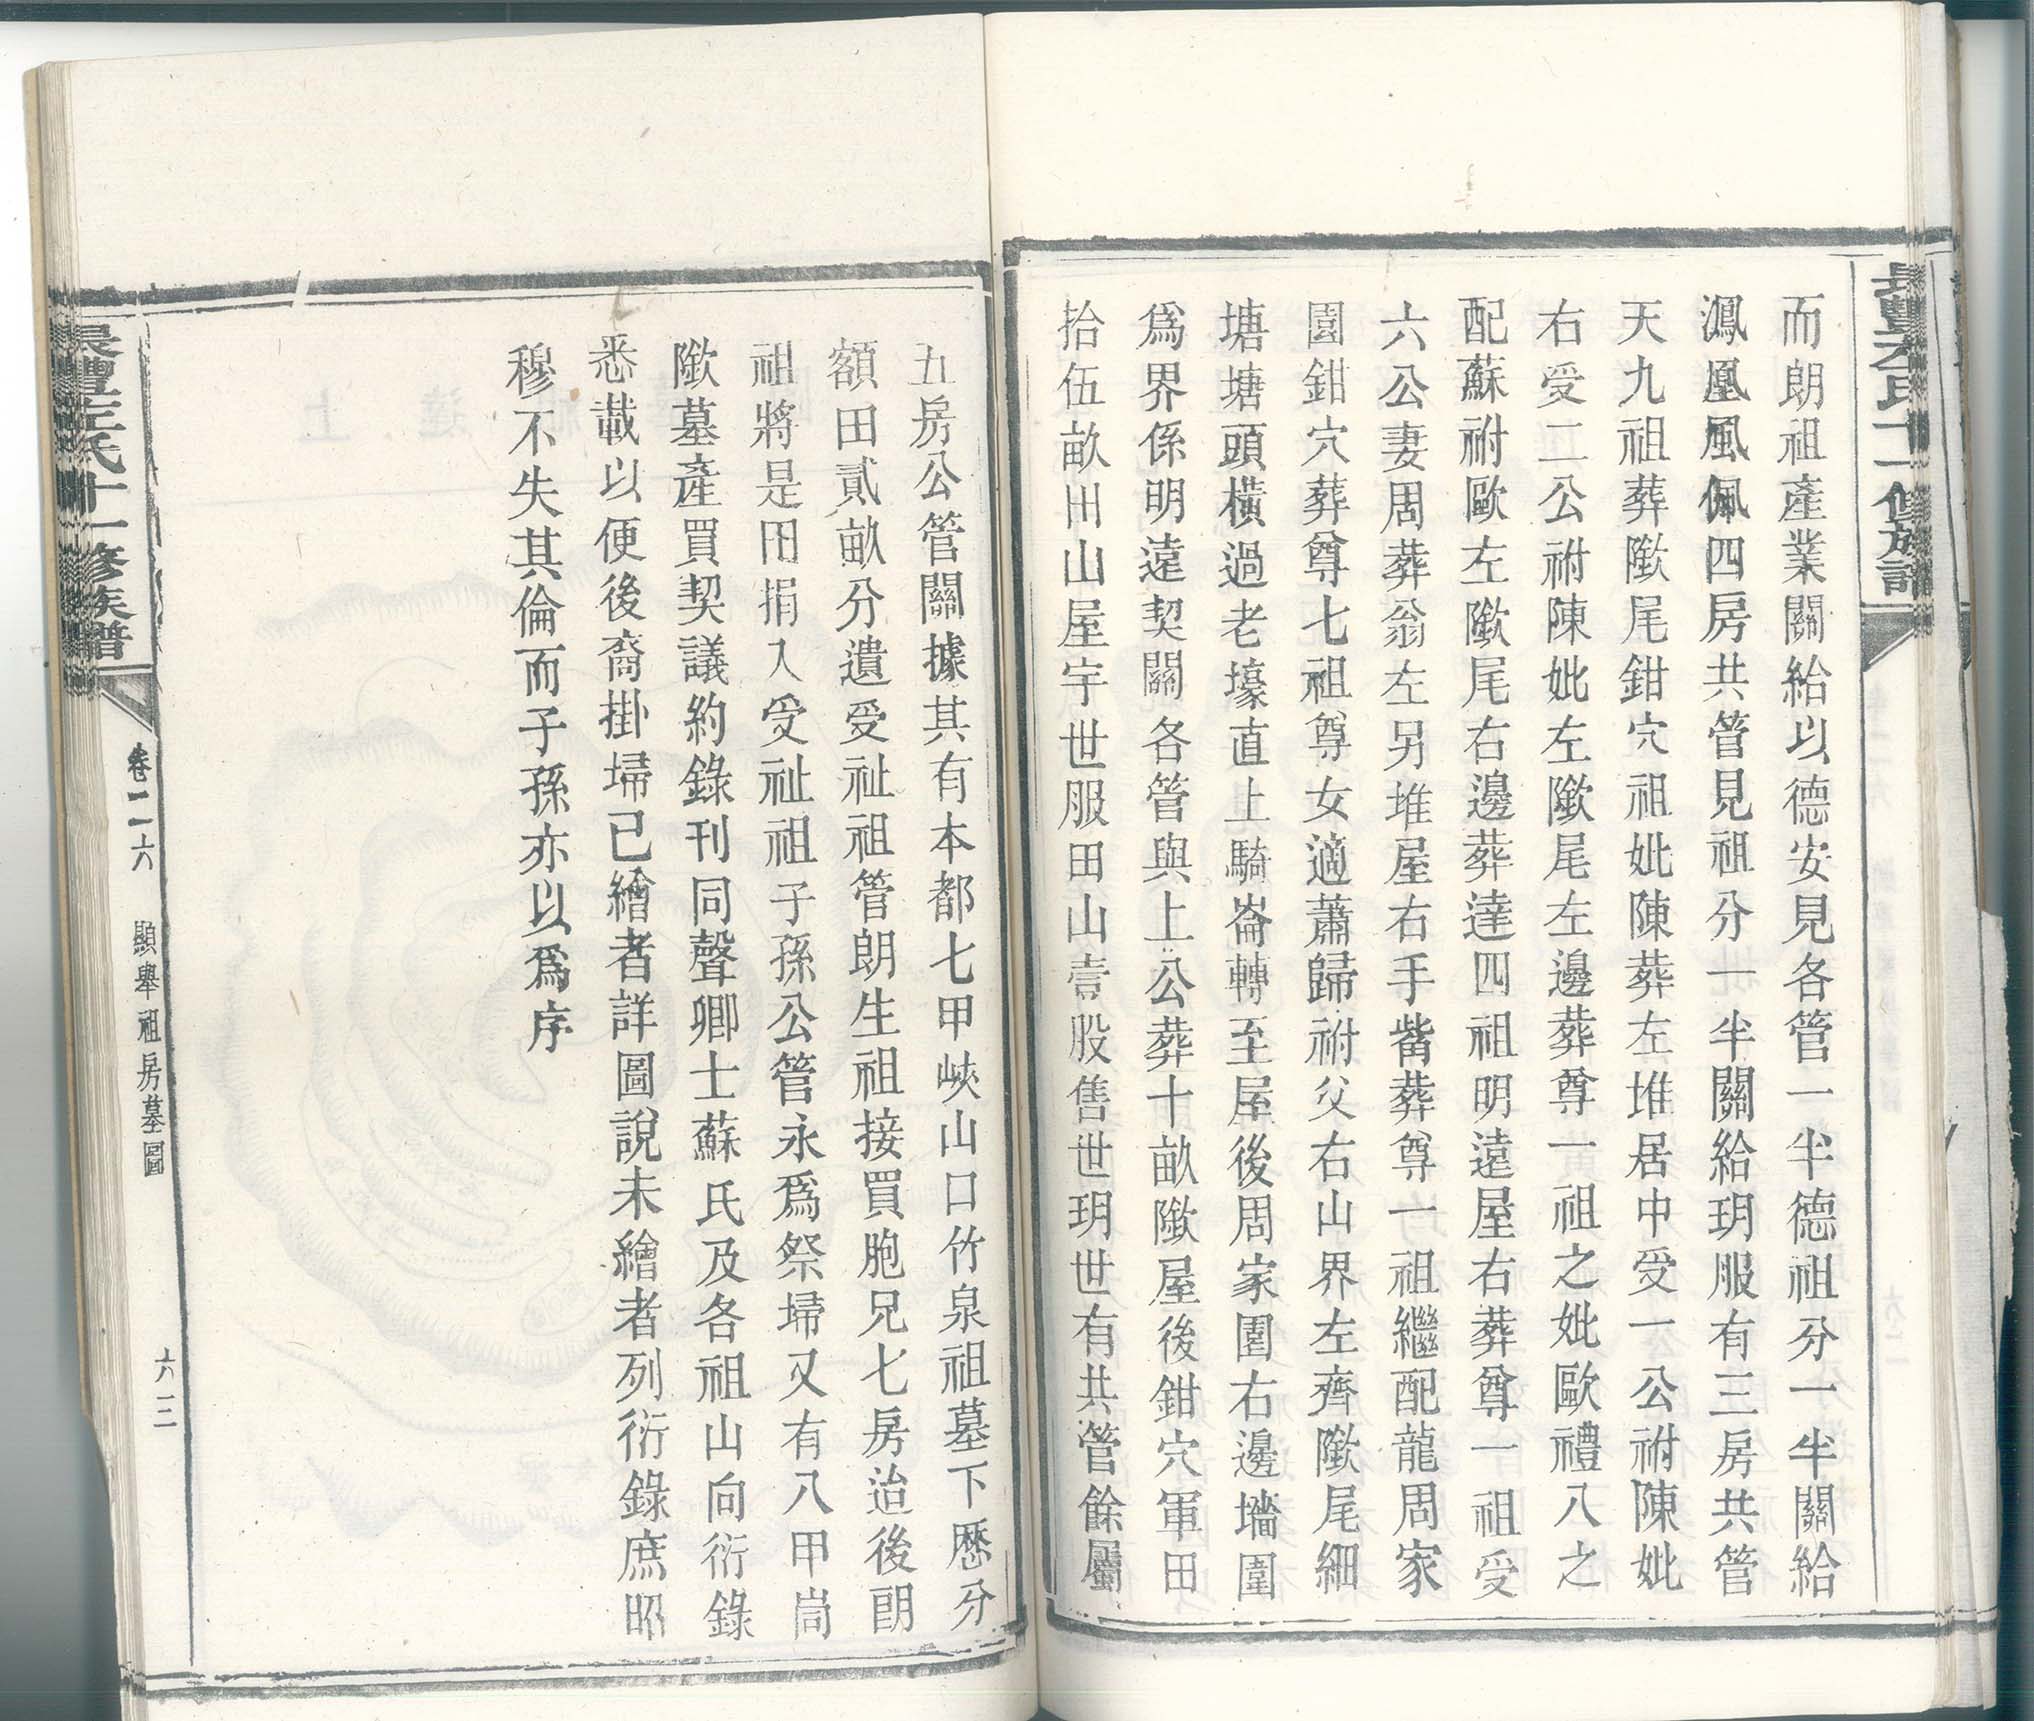 而朗祖產業關給以德安見各管一半德祖分一半關給
鴻凰風佩四房共管見祖分一半關給玥服有三房共管
天九祖葬歘尾鉗穴祖妣陳葬左堆居中受一公祔陳妣
右受二公祔陳妣左歘尾左邊葬尊一祖之妣歐禮八之
配蘇祔歐左歘尾右邊葬達四祖明遠屋右葬尊一祖受
六公妻周葬翁左另堆屋右手觜葬尊一祖繼配龍周家
園鉗穴葬尊七祖尊女適蕭歸祔父右山界左齊歘尾細
塘塘頭橫過老壕直上騎崙轉至屋後周家園右邊墻圍
爲界係明遠契關各管與上公葬十畝歘屋後鉗穴軍田
拾伍畝田山屋宇世服田山壹股售世玥世有共管餘屬
五房公管關據其有本都七甲峽山口竹泉祖墓下歷分
額田貳畝分遺受祉祖管朗生祖接買胞兄七房迨後朗
祖將是田捐入受祉祖子孫公管永爲祭埽又有八甲崗
歘墓產買契議約錄刊同聲卿士蘇氏及各祖山向衍錄
悉載以便後裔掛埽已繪者詳圖說未繪者列衍錄庶昭
穆不失其倫而子孫亦以爲序
十一修族譜
卷二六
顯舉祖房墓圖
六三